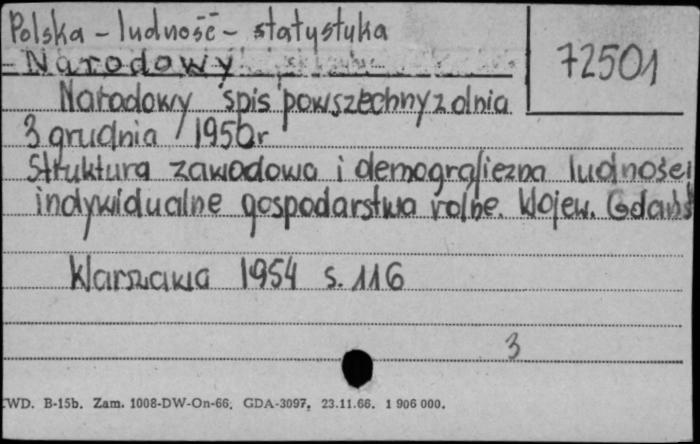 Polska - ludność - statystyka
- Narodowy
72501
Narodowy spis powszechny z dnia
3 grudnia 1950 r
Struktura zawodowa i demograficzna ludności
indywidualne gospodarstwa rolne. Wojew. Gdańs
Warszawa 1954 s. 116
3
WD. B-15b. Zam. 1008-DW-On-66. GDA-3097. 23.11.66. 1 906 000.